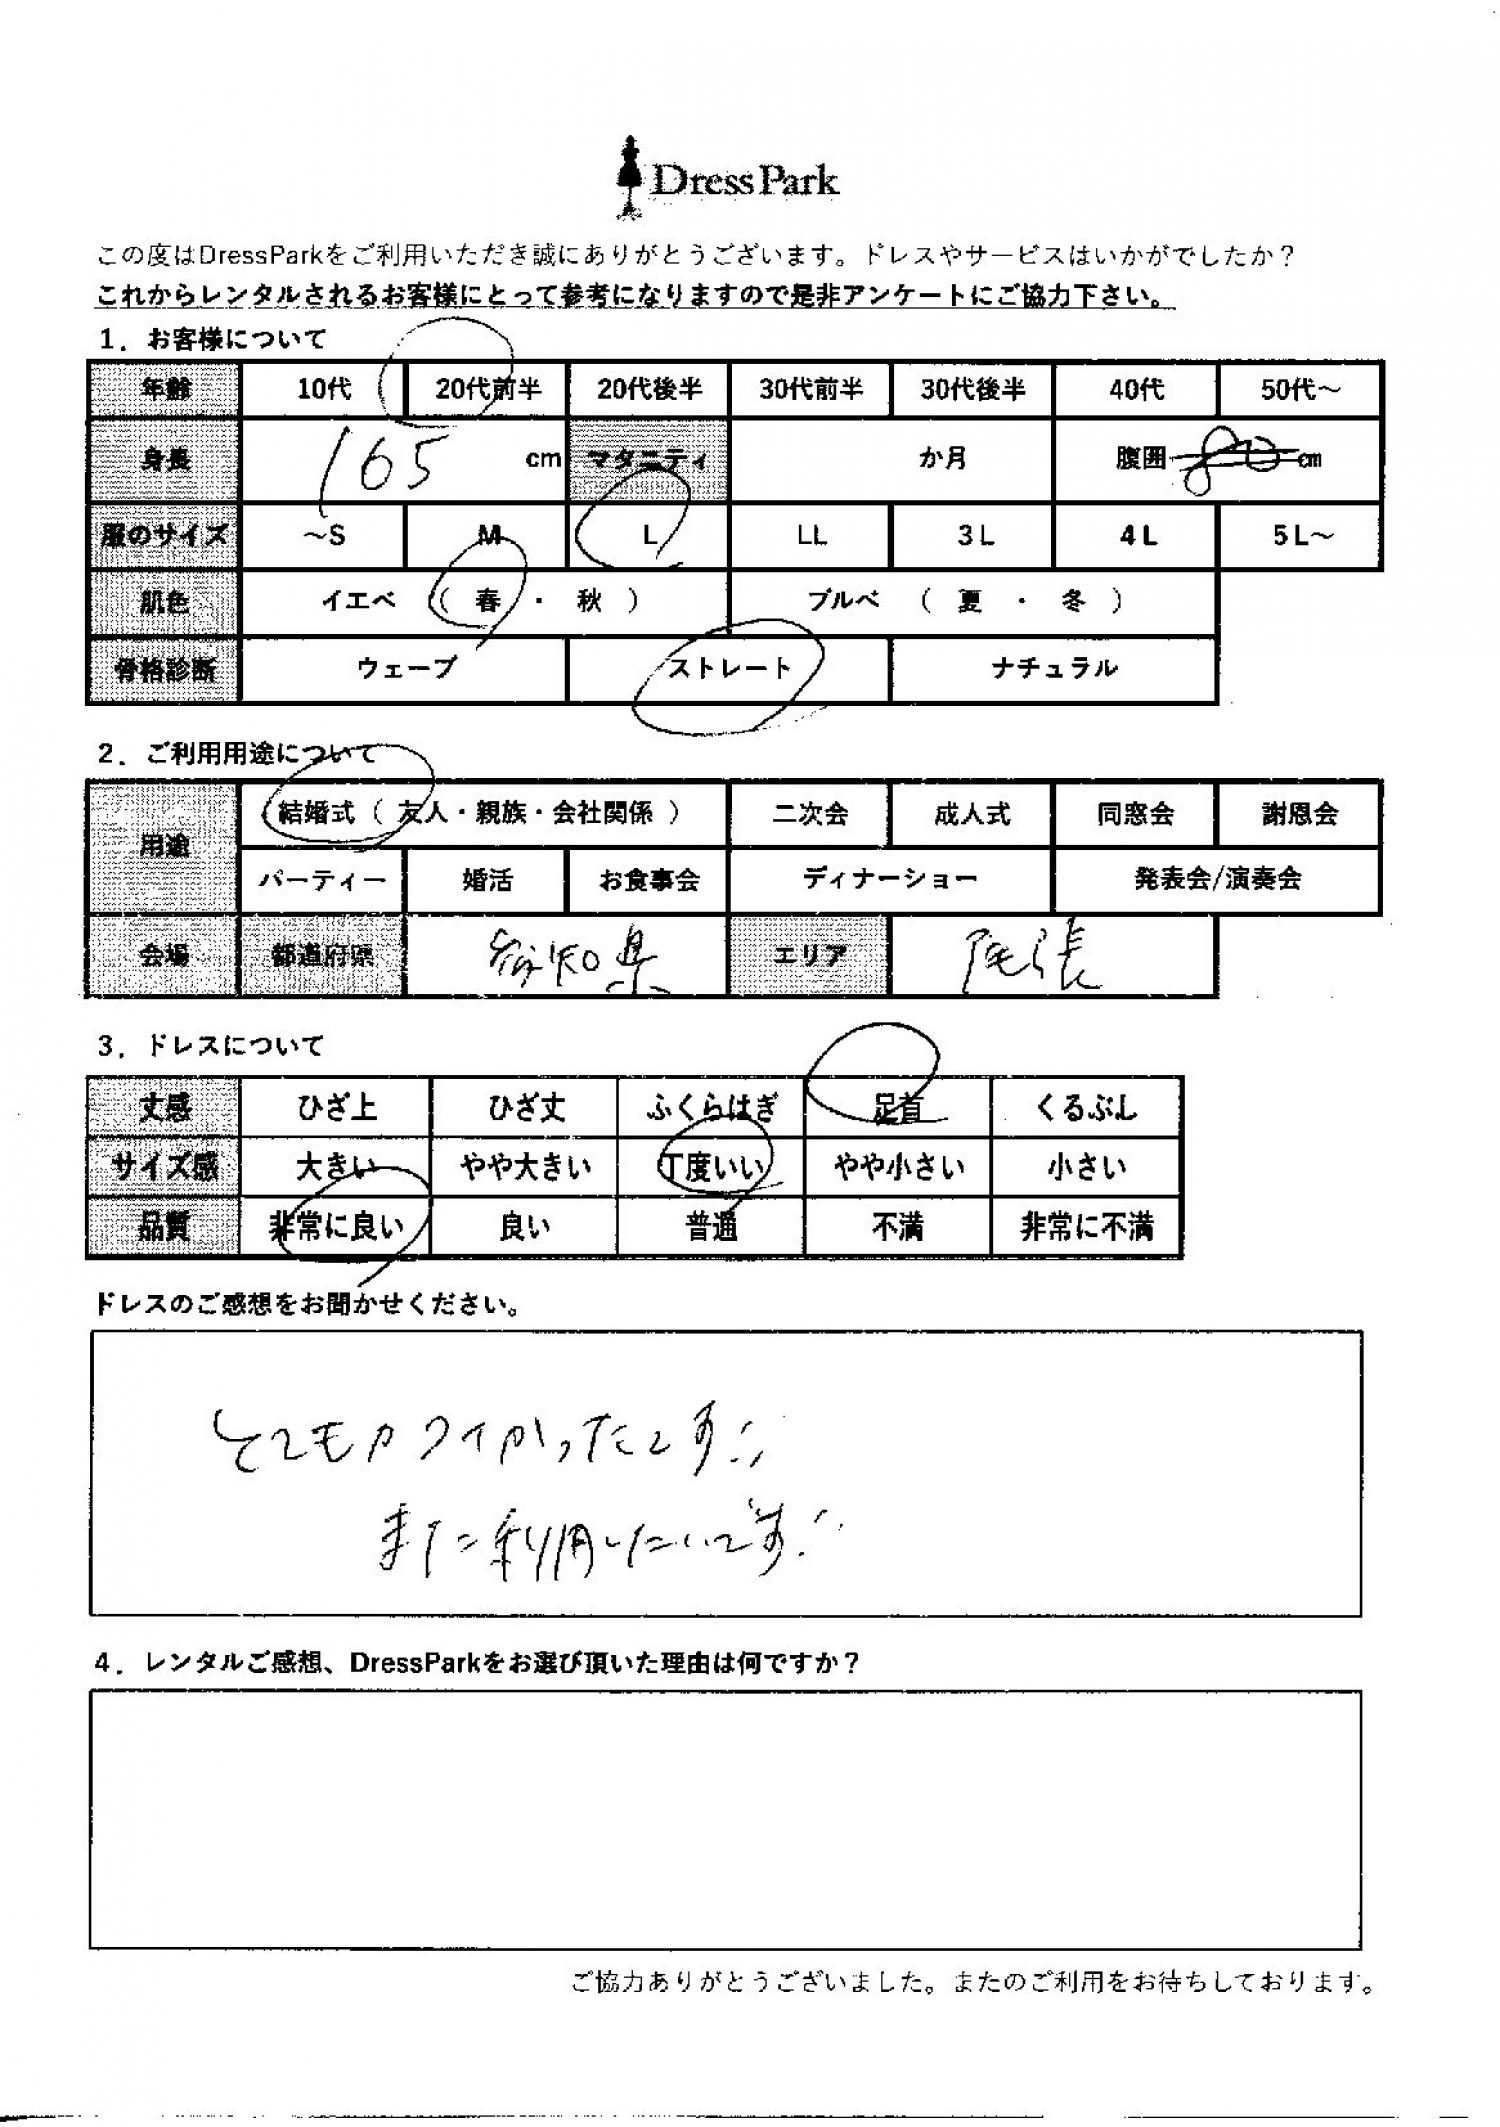 DressPark
この度はDressParkをご利用いただき誠にありがとうございます。ドレスやサービスはいかがでしたか？
これからレンタルされるお客様にとって参考になりますので是非アンケートにご協力下さい。
1．お客様について
年齢 10代 20代前半 20代後半 30代前半 30代後半 40代 50代～
身長 165 cm マタニティ か月 腹囲 80 cm
服のサイズ ～S M L LL 3L 4L 5L～
肌色 イエベ （ 春 ・ 秋 ） ブルベ （ 夏 ・ 冬 ）
骨格診断 ウェーブ ストレート ナチュラル
2．ご利用用途について
用途 結婚式（ 友人・親族・会社関係 ） 二次会 成人式 同窓会 謝恩会
パーティー 婚活 お食事会 ディナーショー 発表会/演奏会
会場 都道府県 愛知県 エリア 尾張
3．ドレスについて
丈感 ひざ上 ひざ丈 ふくらはぎ 足首 くるぶし
サイズ感 大きい やや大きい 丁度いい やや小さい 小さい
品質 非常に良い 良い 普通 不満 非常に不満
ドレスのご感想をお聞かせください。
とてもカワイかったです
また利用したいです
4．レンタルご感想、DressParkをお選び頂いた理由は何ですか？
ご協力ありがとうございました。またのご利用をお待ちしております。